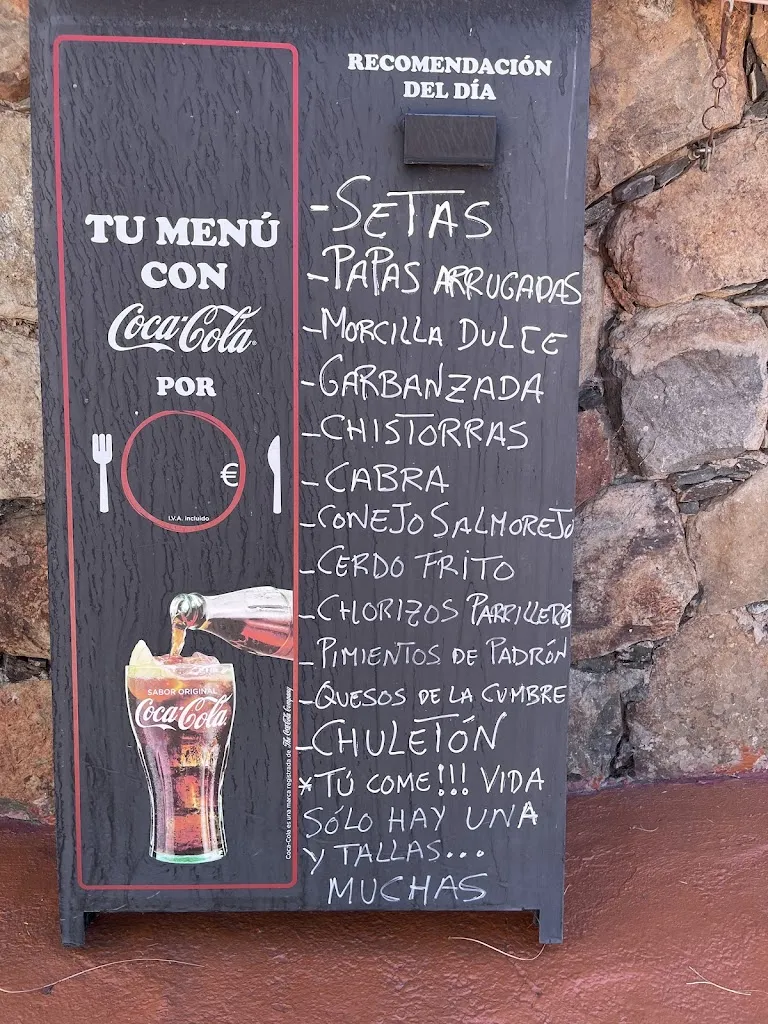 TU MENÚ
CON
Coca-Cola
POR
€
I.V.A. Incluido
SABOR ORIGINAL
Coca-Cola
Coca-Cola es una marca registrada de The Coca-Cola Company
RECOMENDACIÓN
DEL DÍA
-SETAS
-PAPAS ARRUGADAS
-MORCILLA DULCE
-GARBANZADA
-CHISTORRAS
-CABRA
-CONEJO SALMOREJO
-CERDO FRITO
-CHORIZOS PARRILLEROS
-PIMIENTOS DE PADRÓN
-QUESOS DE LA CUMBRE
-CHULETÓN
*TÚ COME!!! VIDA
SÓLO HAY UNA
Y TALLAS...
MUCHAS